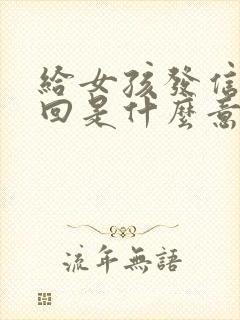 給女孩發信
回是什麼意
流年無語